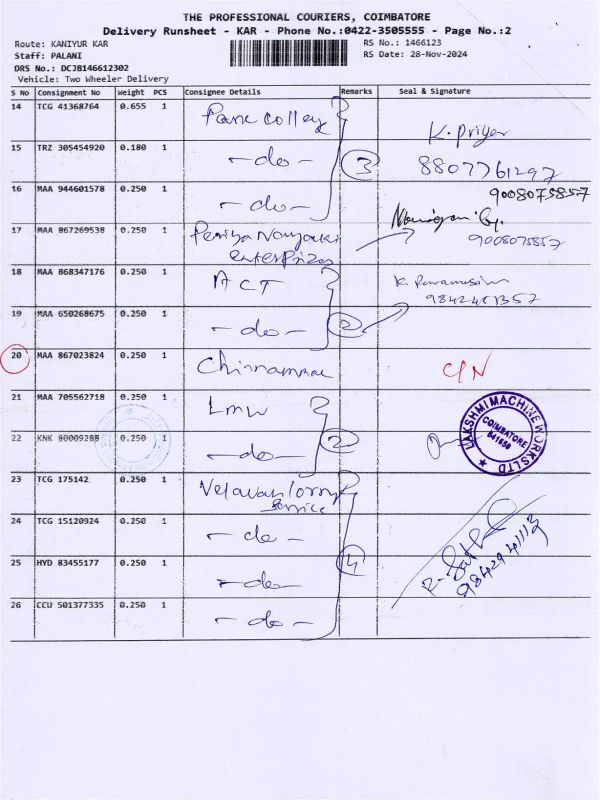 THE PROFESSIONAL COURIERS, COIMBATORE
Delivery Runsheet - KAR - Phone No.:0422-3505555 - Page No.:2
Route: KANIYUR KAR
RS No.: 1466123
Staff: PALANI
RS Date: 28-Nov-2024
DRS No.: DCJB146612302
Vehicle: Two Wheeler Delivery
S No Consignment No Weight PCS Consignee Details Remarks Seal & Signature
14 TCG 41368764 0.655 1
K. Priya
15 TRZ 305454920 0.180 1 -do- 3 8807761297
16 MAA 944601578 0.250 1 -do- 9008075857
17 MAA 867269538 0.250 1 Periya Nayaki
enterprizes 9008075857
18 MAA 868347176 0.250 1 ACT
19 MAA 650268675 0.250 1 -do- 2
20 MAA 867023824 0.250 1 C/N
21 MAA 705562718 0.250 1 LMW
LAKSHMI MACHINE WORKS LTD
COIMBATORE
641659
22 KNK 80009288 0.250 1 -do- 2
23 TCG 175142 0.250 1 Velavan lorry
Service
24 TCG 15120924 0.250 1 -do-
25 HYD 83455177 0.250 1 -do- 4
26 CCU 501377335 0.250 1 -do-